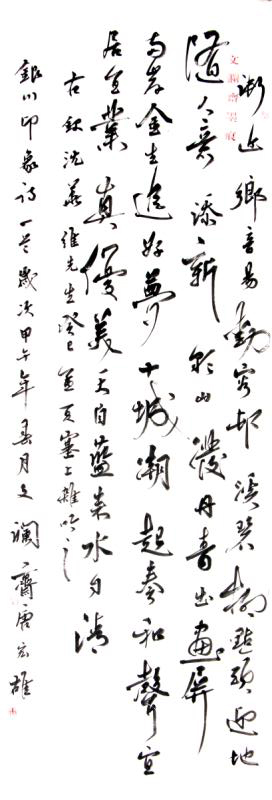 漸近鄉音易動容邨溪碧柳點頭迎地
隨人意添新彩山潑丹青出畫屏
兩岸金生追好夢十城潮起奏和聲宜
居宜業真優美天自藍来水自清
右錄沈華維先生癸巳孟夏塞上雜吟之
銀川印象詩一首歲次甲午年春月文瀾齋唐宏雄
文瀾齋墨痕